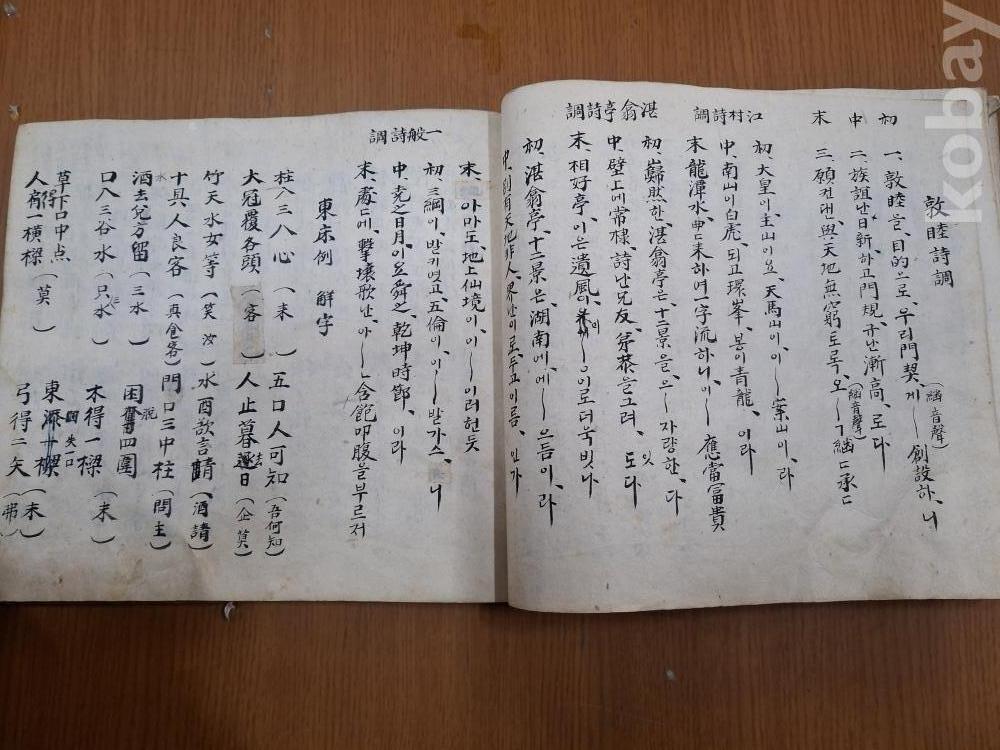 敦睦詩調
初 一、敦睦을、目的으로、우리門契、게ㅣ(細音聲)創設하、니
中 二、族誼난日新、하고門規、규난漸高、로다
末 三、願컨댄、與天地無窮토록、오ㅣㄱ(細音聲)繼ㄷ承ㄷ
江村詩調
初、大皇이、主山이요、天馬山이、이ㅣ案山이、라
中、南山이白虎、되고環峯、봉이青龍、이라
末 龍潭水、曲ㄷ來하여一字流하니、이ㅣ應當富貴
湛翁亭詩調
初、巋然한、湛翁亭은、十二景을、으ㅣ자랑한、다
中、壁上에常棣、詩난兄友、弟恭을그려、잇도다
末、相好亭、이은遺風、이ㅣ으이로더욱빗나
初、湛翁亭、十二景은、湖南에、에ㅣ으듬이、라
中、別有天地非人、界난이로、두고이름、인가
末、아마도、地上仙境이、이ㅣ이러헌듯
一般詩調
初、三綱이、발키였고、五倫이、이ㅣ발가스、니
中、堯之日月、이요舜之、乾坤時節、이라
末、處ㄷ에、擊壤歌난、아ㅣ含飽叩腹을부르저
東床例 解字
柱入三八心(未) 五口人可知(吾何知)
大冠覆各頭(客) 人止暮逐去日(企莫)
竹天水女等(笑汝) 水酉欬言請(酒請)
十具、人良客(真食客) 門口三中柱(問主)
水
酒去兌方留(三水) 困舊脫四圍
口八三谷水(只水) 木得一樑(末)
草下口中点
人有得一橫樑(莫) 東 失口樑(未)
弓得二矢(弗)